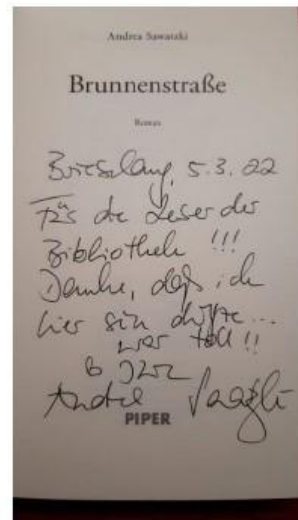 Andrea Sawatzki
Brunnenstraße
Roman
Brieselang, 5.3.22
Für die Leser der
Bibliothek !!!
Danke, daß ich
hier sein durfte...
war toll !!
Andrea Sawatzki
PIPER